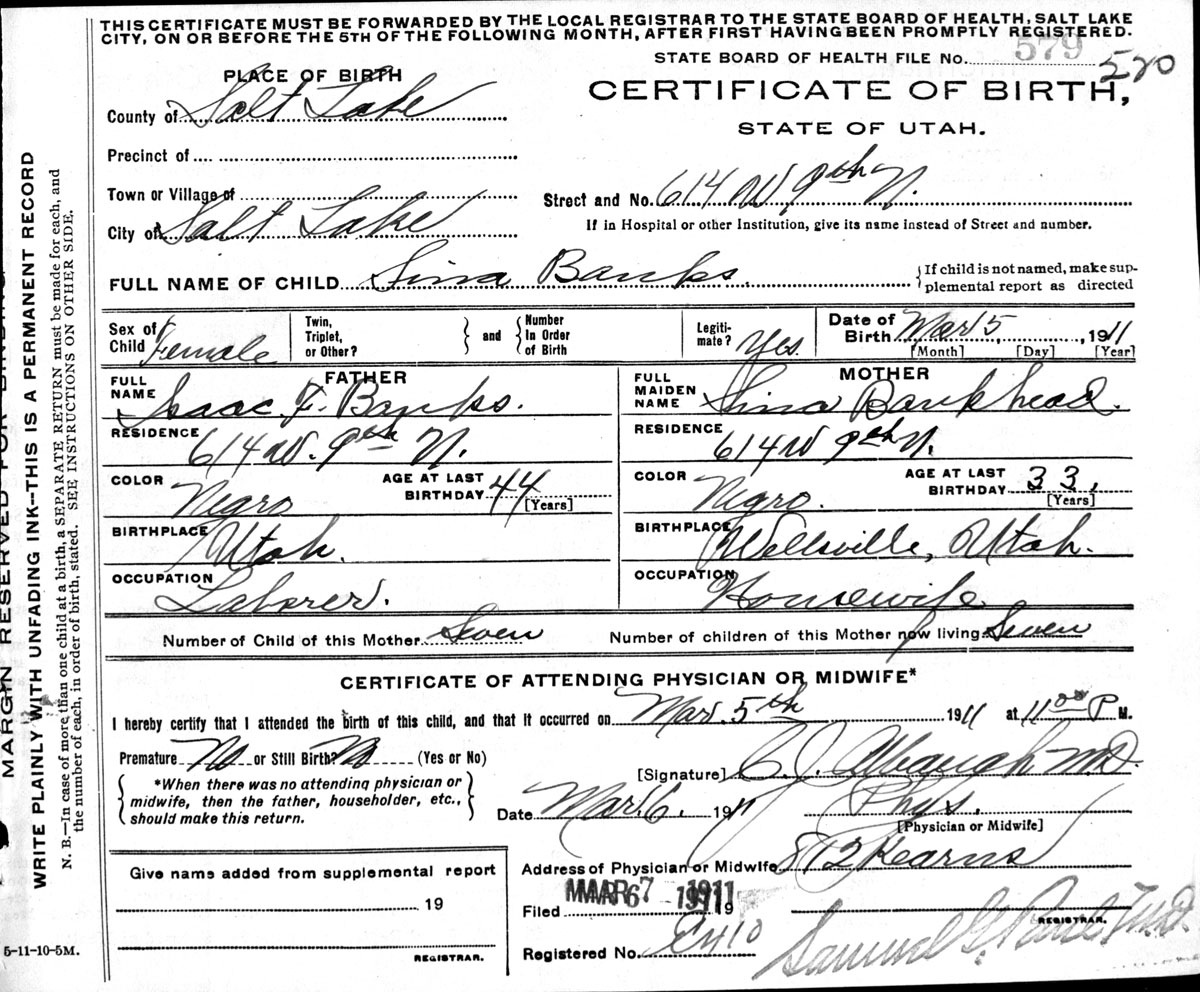 THIS CERTIFICATE MUST BE FORWARDED BY THE LOCAL REGISTRAR TO THE STATE BOARD OF HEALTH, SALT LAKE
CITY, ON OR BEFORE THE 5TH OF THE FOLLOWING MONTH, AFTER FIRST HAVING BEEN PROMPTLY REGISTERED.
STATE BOARD OF HEALTH FILE No. 579 520
PLACE OF BIRTH
CERTIFICATE OF BIRTH,
County of Salt Lake
STATE OF UTAH.
Precinct of
Town or Village of
Street and No. 614 W 9th N.
City of Salt Lake
If in Hospital or other Institution, give its name instead of Street and number.
FULL NAME OF CHILD Sina Banks.
If child is not named, make sup-
plemental report as directed
Sex of Child Female
Twin, Triplet, or Other?
and
Number In Order of Birth
Legiti-mate? Yes.
Date of Birth Mar 5, 1911
[Month] [Day] [Year]
FATHER
FULL NAME Isaac F. Banks.
RESIDENCE 614 W. 9th N.
COLOR Negro
AGE AT LAST BIRTHDAY 44 [Years]
BIRTHPLACE Utah.
OCCUPATION Laborer.
MOTHER
FULL MAIDEN NAME Sina Bankhead.
RESIDENCE 614 W 9th N.
COLOR Negro.
AGE AT LAST BIRTHDAY 33, [Years]
BIRTHPLACE Wellsville, Utah.
OCCUPATION Housewife
Number of Child of this Mother Seven
Number of children of this Mother now living Seven
CERTIFICATE OF ATTENDING PHYSICIAN OR MIDWIFE*
I hereby certify that I attended the birth of this child, and that it occurred on Mar. 5th 1911 at 11 00 P M.
Premature No or Still Birth? No (Yes or No)
[Signature] C. J. Albaugh MD.
*When there was no attending physician or
midwife, then the father, householder, etc.,
should make this return.
Date Mar. 6. 1911
Phys.
[Physician or Midwife]
Address of Physician or Midwife 812 Kearns
Give name added from supplemental report
19
REGISTRAR.
Filed MAR 7 1911 19
REGISTRAR.
Registered No. E410
Samuel G. Paul, M.D.
5-11-10-5M.
MARGIN RESERVED FOR BINDING
WRITE PLAINLY WITH UNFADING INK--THIS IS A PERMANENT RECORD
N. B.—In case of more than one child at a birth, a SEPARATE RETURN must be made for each, and
the number of each, in order of birth, stated. SEE INSTRUCTION ON OTHER SIDE.